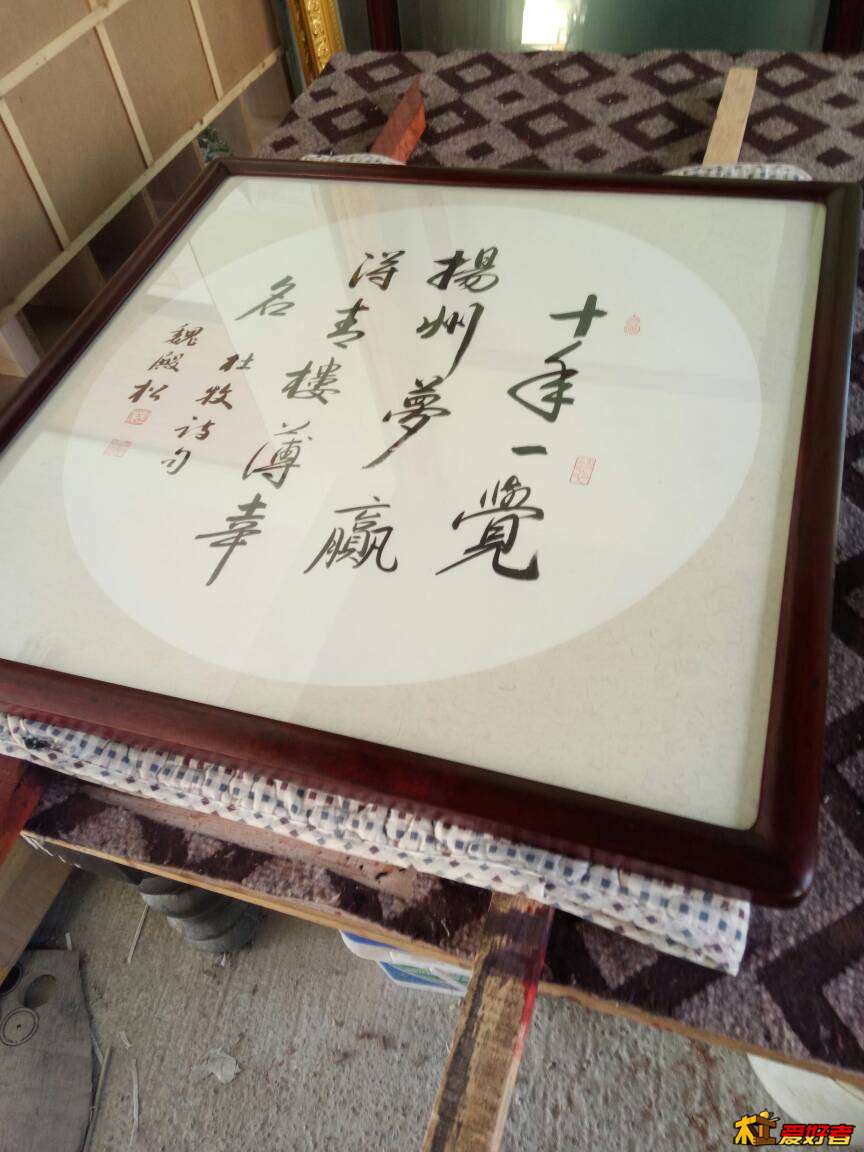 十年一覺
揚州夢贏
得青樓薄幸
名
杜牧诗句
魏殿松
爱好者